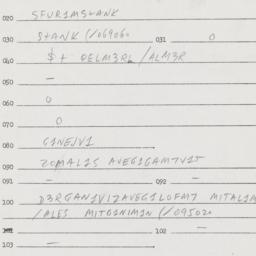 020 SFUR1MS+ANK
030 S+ANK (/069060 031 0
040 $ + OELM3RL /ALM3R
050 –
060 0
070 0
080 G1NEJV1
090 ZOMAL1S AVEG1GAM7V1T
091 – 092 –
100 D3RGAN1V1ZAVEG1LOFM7 MITAL1M
/ALES MITG1NIM1N (/095020
101 102 –
103 –